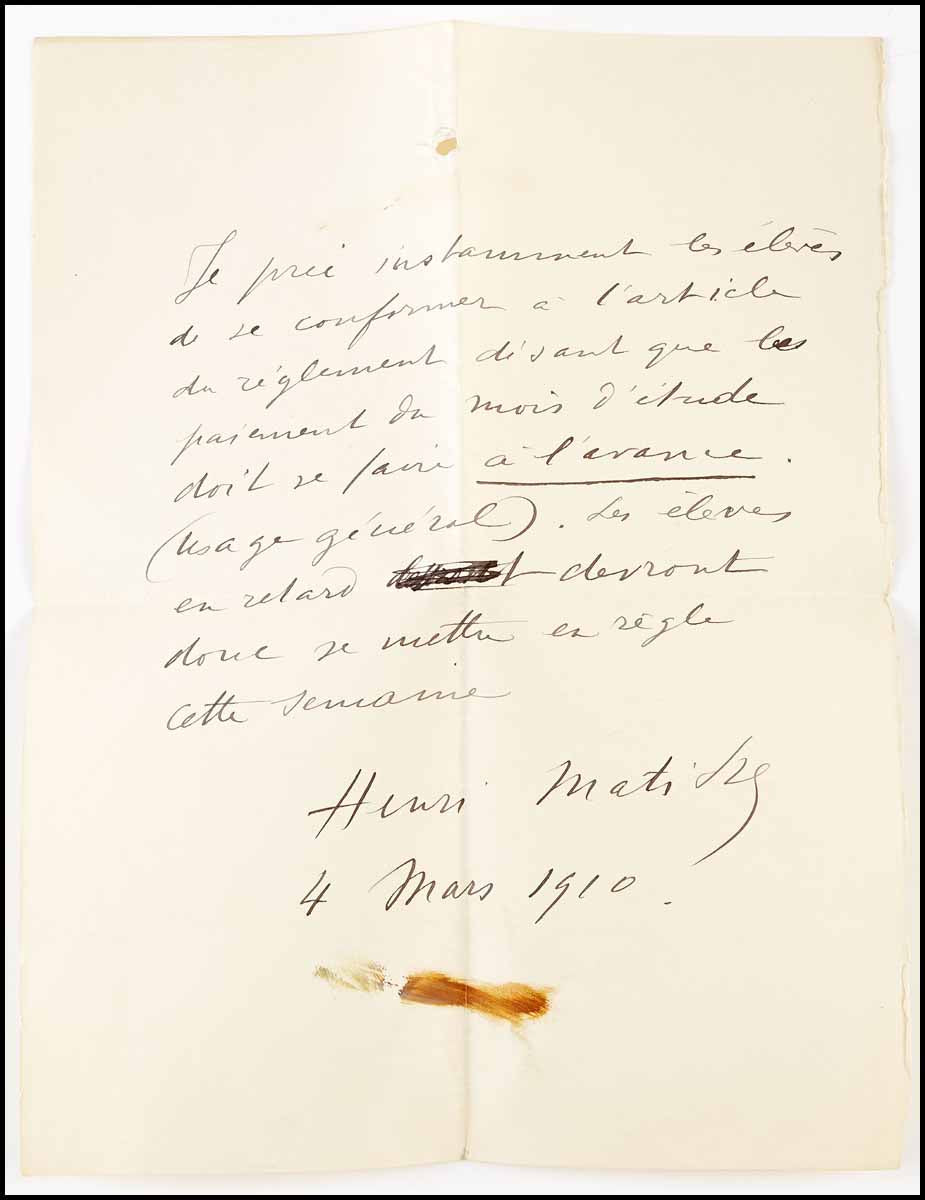 Je prie instamment les élèves
de se conformer à l'article
du réglement disant que les
paiement du mois d'étude
doit se faire à l'avance.
(usage général). Les élèves
en retard devront
donc se mettre en règle
cette semaine
Henri Matisse
4 Mars 1910.